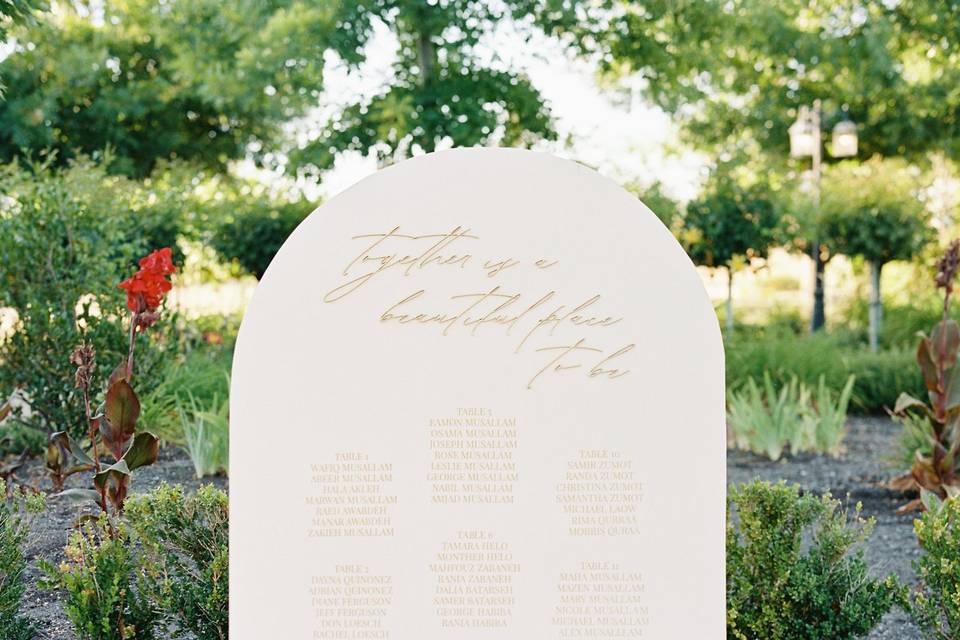 together is a
beautiful place
to be
TABLE 1
WAFIQ MUSALLAM
ABEER MUSALLAM
HALA AKLEH
MARWAN MUSALLAM
RAED AWABDEH
MANAR AWABDEH
ZAKIEH MUSALLAM
TABLE 2
DAYNA QUINONEZ
ADRIAN QUINONEZ
DIANE FERGUSON
JEFF FERGUSON
DON LOESCH
RACHEL LOESCH
TABLE 5
EAMON MUSALLAM
OSAMA MUSALLAM
JOSEPH MUSALLAM
ROSE MUSALLAM
LESLIE MUSALLAM
GEORGE MUSALLAM
NABIL MUSALLAM
AMJAD MUSALLAM
TABLE 6
TAMARA HELO
MONTHER HELO
MAHFOUZ ZABANEH
RANIA ZABANEH
DALIA BATARSEH
SAMER BATARSEH
GEORGE HABIBA
RANIA HABIBA
TABLE 10
SAMIR ZUMOT
RANDA ZUMOT
CHRISTINA ZUMOT
SAMANTHA ZUMOT
MICHAEL LAOW
RIMA QURRAA
MORRIS QURAA
TABLE 11
MAHA MUSALLAM
MAZEN MUSALLAM
MARY MUSALLAM
NICOLE MUSALLAM
MICHAEL MUSALLAM
ALEX MUSALLAM